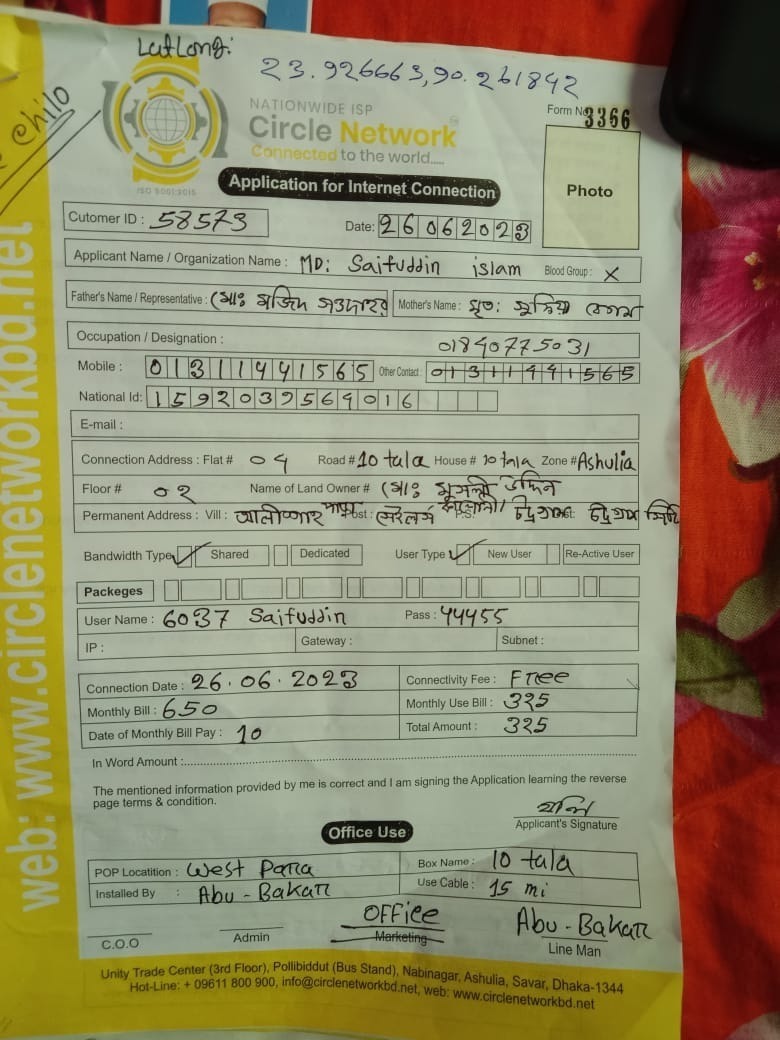 LatLong:
23.926663,90.261842
chilo
NATIONWIDE ISP
Circle Network
Connected to the world.....
ISO 9001:2015
Form No 3366
Application for Internet Connection
Photo
Cutomer ID : 58573
Date: 26062023
Applicant Name / Organization Name : MD: Saifuddin islam Blood Group : X
Father's Name / Representative : মোঃ মজিদ Mother's Name : মৃত: সুফিয়া
Occupation / Designation :
01840775031
Mobile : 01311441565 Other Contact : 01311441565
National Id: 1592037564016
E-mail :
Connection Address : Flat # 04 Road # 10 tala House # 10 tala Zone # Ashulia
Floor # 02 Name of Land Owner # মোঃ উদ্দিন
Permanent Address : Vill : Post : P.S:
Bandwidth Type Shared Dedicated User Type New User Re-Active User
Packeges
User Name : 6037 Saifuddin Pass : 44455
IP : Gateway : Subnet :
Connection Date : 26.06.2023 Connectivity Fee : Free
Monthly Bill : 650 Monthly Use Bill : 325
Date of Monthly Bill Pay : 10 Total Amount : 325
In Word Amount :
The mentioned information provided by me is correct and I am signing the Application learning the reverse
page terms & condition.
Applicant's Signature
Office Use
POP Locatition : West Para Box Name : 10 tala
Installed By : Abu-Bakar Use Cable : 15 mi
C.O.O Admin OFFice Marketing Abu-Bakar Line Man
Unity Trade Center (3rd Floor), Pollibiddut (Bus Stand), Nabinagar, Ashulia, Savar, Dhaka-1344
Hot-Line: + 09611 800 900, info@circlenetworkbd.net, web: www.circlenetworkbd.net
web: www.circlenetworkbd.net